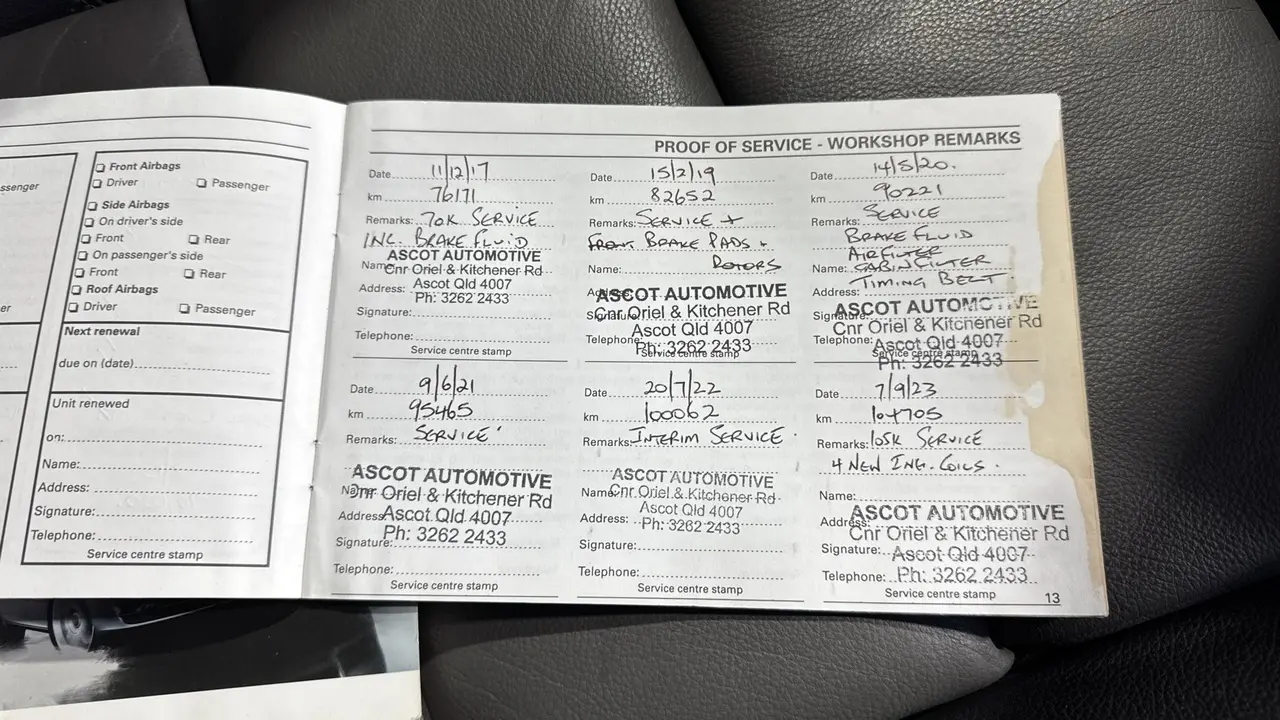 ssenger
er
Front Airbags
Driver Passenger
Side Airbags
On driver's side
Front Rear
On passenger's side
Front Rear
Roof Airbags
Driver Passenger
Next renewal
due on (date)
Unit renewed
on:
Name:
Address:
Signature:
Telephone:
Service centre stamp
PROOF OF SERVICE - WORKSHOP REMARKS
Date 11/12/17
km 76171
Remarks: 70K SERVICE
INC. BRAKE FLUID
ASCOT AUTOMOTIVE
Name: Cnr Oriel & Kitchener Rd
Address: Ascot Qld 4007
Ph: 3262 2433
Signature:
Telephone:
Service centre stamp
Date 15/2/19
km 82652
Remarks: SERVICE +
FRONT BRAKE PADS +
Name: ROTORS
Address:
ASCOT AUTOMOTIVE
Signature: Cnr Oriel & Kitchener Rd
Ascot Qld 4007
Telephone: Ph: 3262 2433
Service centre stamp
Date 14/5/20.
km 90221
Remarks: SERVICE
BRAKE FLUID
AIRFILTER
Name: CABIN FILTER
TIMING BELT
Address:
ASCOT AUTOMOTIVE
Signature: Cnr Oriel & Kitchener Rd
Telephone: Ascot Qld 4007
Service centre stamp
Ph: 3262 2433
Date 9/6/21
km 95465
Remarks: SERVICE
ASCOT AUTOMOTIVE
Name: Cnr Oriel & Kitchener Rd
Address: Ascot Qld 4007
Ph: 3262 2433
Signature:
Telephone:
Service centre stamp
Date 20/7/22
km 100062
Remarks: INTERIM SERVICE.
ASCOT AUTOMOTIVE
Name: Cnr Oriel & Kitchener Rd
Ascot Qld 4007
Address: Ph: 3262 2433
Signature:
Telephone:
Service centre stamp
Date 7/9/23
km 104705
Remarks: 105K SERVICE
4 NEW ING. COILS.
Name:
ASCOT AUTOMOTIVE
Address: Cnr Oriel & Kitchener Rd
Signature: Ascot Qld 4007
Telephone: Ph: 3262 2433
Service centre stamp
13